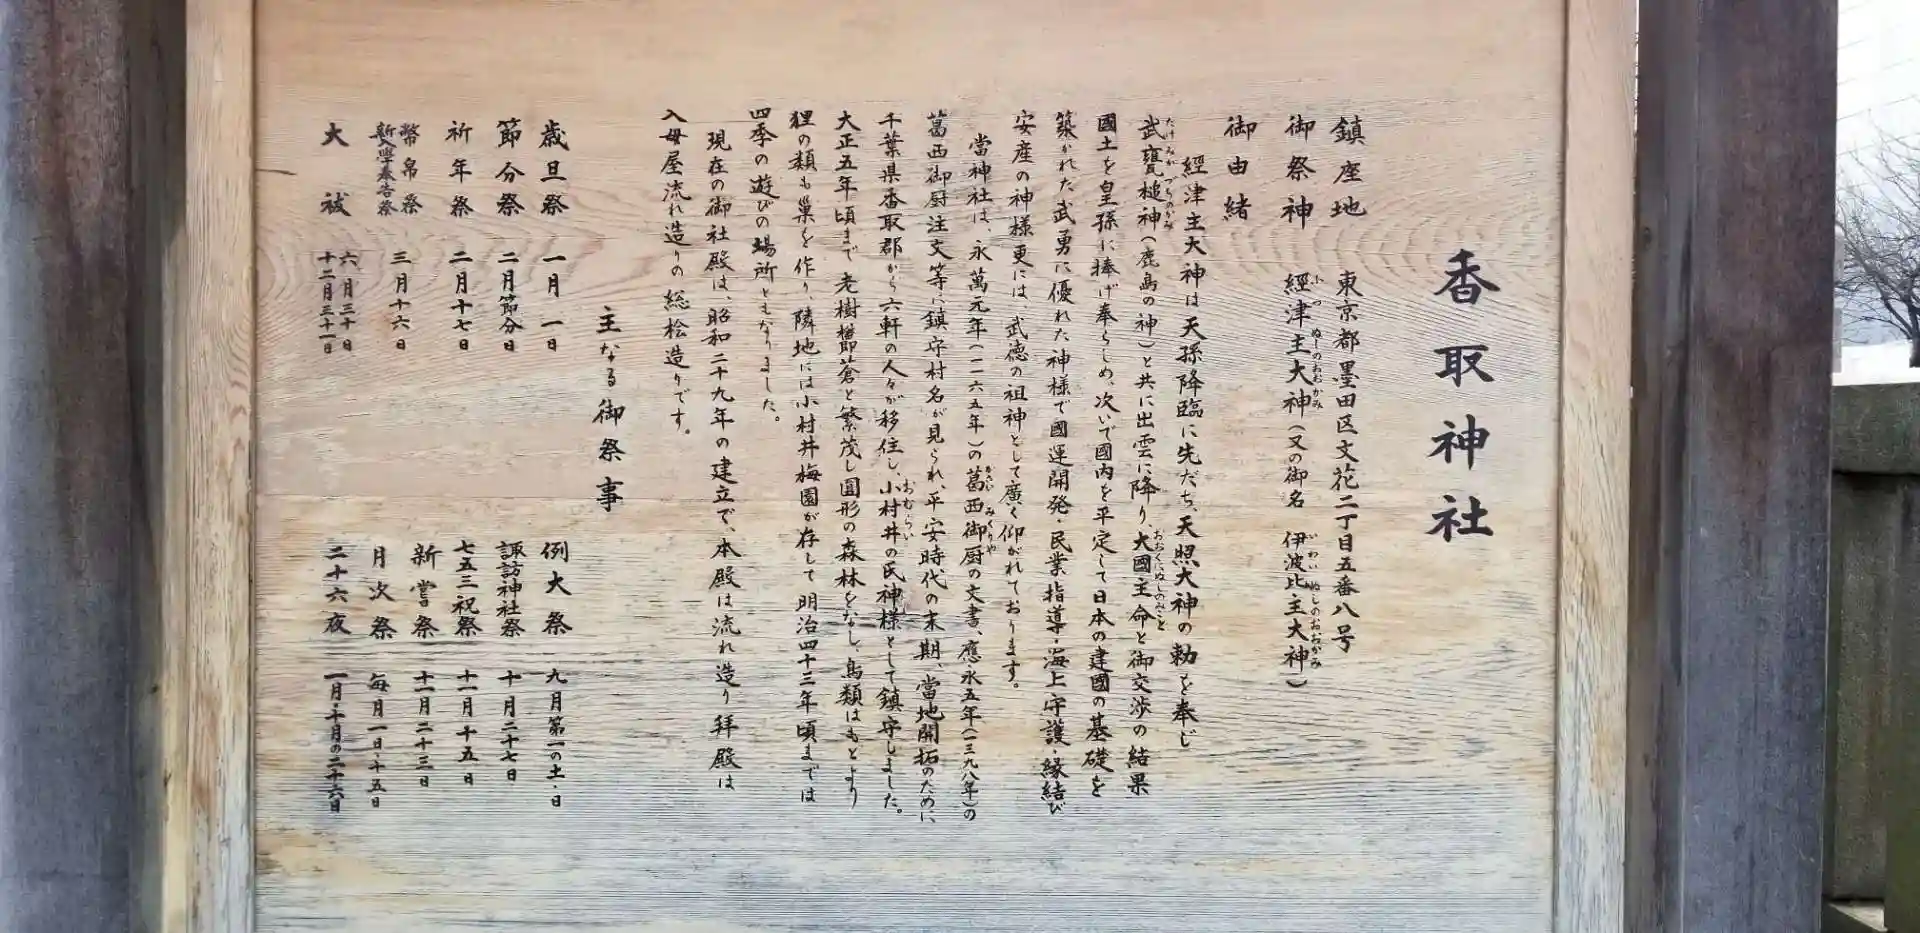 香取神社
鎮座地 東京都墨田区文花二丁目五番八号
御祭神 經津主大神(又の御名 伊波比主大神)
ふつ ぬしのおおかみ いわい ぬしのおおかみ
御由緒
經津主大神は天孫降臨に先だち、天照大神の勅を奉じ
武甕槌神(鹿島の神)と共に出雲に降り、大國主命と御交渉の結果
たけみか づちのかみ おおくにぬしのみこと
國土を皇孫に捧げ奉らしめ、次いで國内を平定して日本の建國の基礎を
築かれた武勇に優れた神様で國運開発・民業指導・海上守護・縁結び
安産の神様更には、武徳の祖神として廣く仰がれております。
當神社は、永萬元年(一一六五年)の葛西御厨の文書、應永五年(一三九八年)の
かさい みくりや
葛西御厨注文等に鎮守村名が見られ、平安時代の末期、當地開拓のために
千葉県香取郡から六軒の人々が移住し、小村井の氏神様として鎮守しました。
おむらい
大正五年頃まで老樹欝蒼と繁茂し圓形の森林をなし、鳥類はもとより
狸の類も巣を作り、隣地には小村井梅園が存して明治四十三年頃までは
四季の遊びの場所ともなりました。
現在の御社殿は、昭和二十九年の建立で、本殿は流れ造り拝殿は
入母屋流れ造りの総桧造りです。
主なる御祭事
歳旦祭 一月一日
節分祭 二月節分日
祈年祭 二月十七日
幣帛祭
新入學奉告祭
三月十六日
大祓
六月三十日
十二月三十一日
例大祭 九月第一の土・日
諏訪神社祭 十月二十七日
七五三祝祭 十一月十五日
新嘗祭 十一月二十三日
月次祭 毎月一日・十五日
二十六夜 一月・十月の二十六日